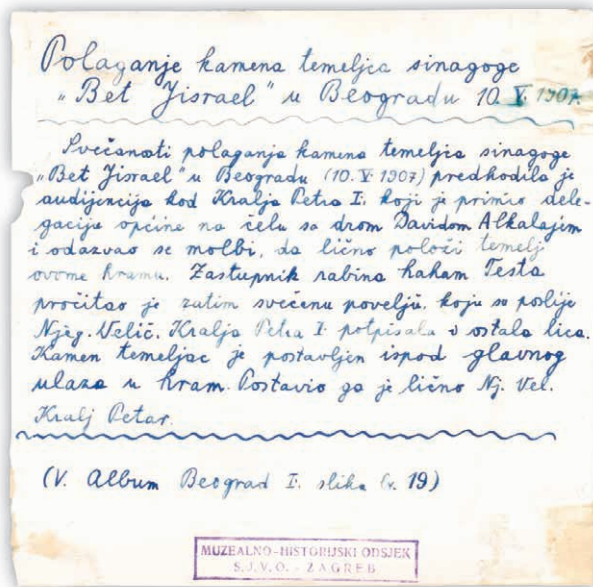 Polaganje kamena temeljca sinagoge
„Bet Jisrael" u Beogradu 10. V. 1907.
Svečanosti polaganja kamena temeljca sinagoge
„Bet Jisrael" u Beogradu (10. V. 1907) predhodila je
audijencija kod Kralja Petra I. koji je primio dele-
gaciju općine na čelu sa drom Davidom Alkalajem
i odazvao se molbi, da lično položi temelj
ovome hramu. Zastupnik rabina haham Testa
pročitao je zatim svečenu povelju, koju su poslije
Njeg. Velič. Kralja Petra I. potpisala i ostala lica.
Kamen temeljac je postavljen ispod glavnog
ulaza u hram. Postavio ga je lično Nj. Vel.
Kralj Petar.
(V. Album Beograd I. slika 19)
MUZEALNO-HISTORIJSKI ODSJEK
S.J.V.O. - ZAGREB